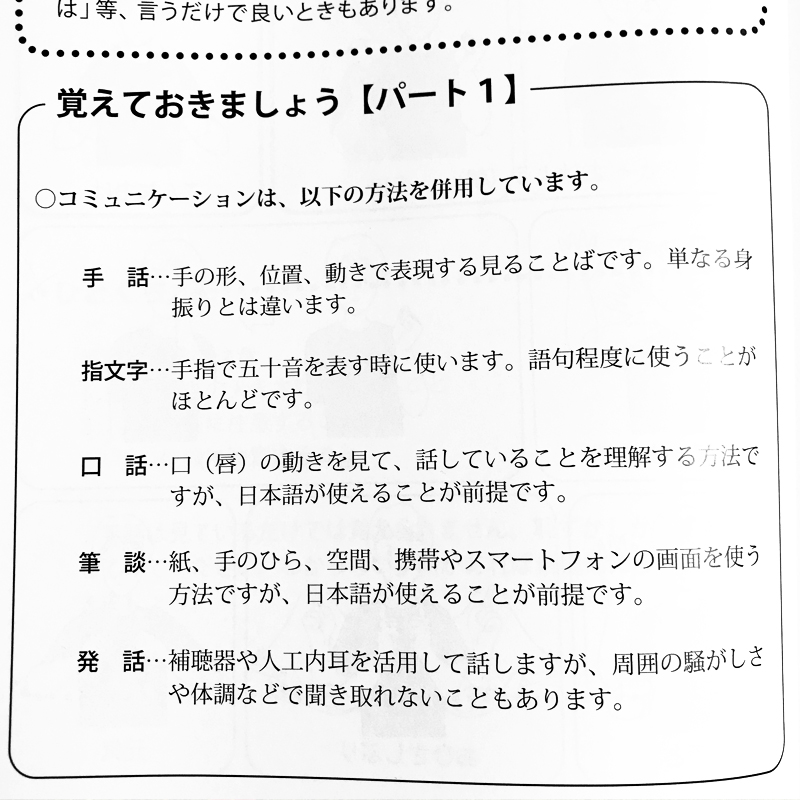 は」等、言うだけで良いときもあります。
覚えておきましょう【パート１】
○コミュニケーションは、以下の方法を併用しています。
手　話…手の形、位置、動きで表現する見ることばです。単なる身
振りとは違います。
指文字…手指で五十音を表す時に使います。語句程度に使うことが
ほとんどです。
口　話…口（唇）の動きを見て、話していることを理解する方法で
すが、日本語が使えることが前提です。
筆　談…紙、手のひら、空間、携帯やスマートフォンの画面を使う
方法ですが、日本語が使えることが前提です。
発　話…補聴器や人工内耳を活用して話しますが、周囲の騒がしさ
や体調などで聞き取れないこともあります。